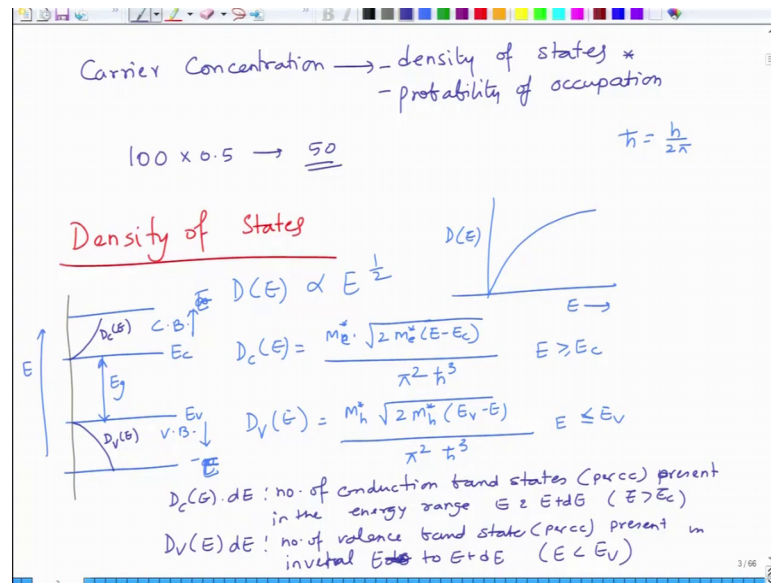 Carrier Concentration → - density of states *
- probability of occupation
100 x 0.5 → 50
ħ = h/2π
Density of States
D(E)
E →
D(E) ∝ E^1/2
E
Dc(E)
C.B.
Ec
Eg
Ev
Dv(E)
V.B.
Dc(E) = me* √2 me* (E-Ec) / π² ħ³ E ≥ Ec
Dv(E) = mh* √2 mh* (Ev-E) / π² ħ³ E ≤ Ev
Dc(E).dE : no. of conduction band states (per cc) present
in the energy range E & E+dE (E > Ec)
Dv(E) dE : no. of valence band state (per cc) present in
inveral E to E+dE (E < Ev)
3 / 66